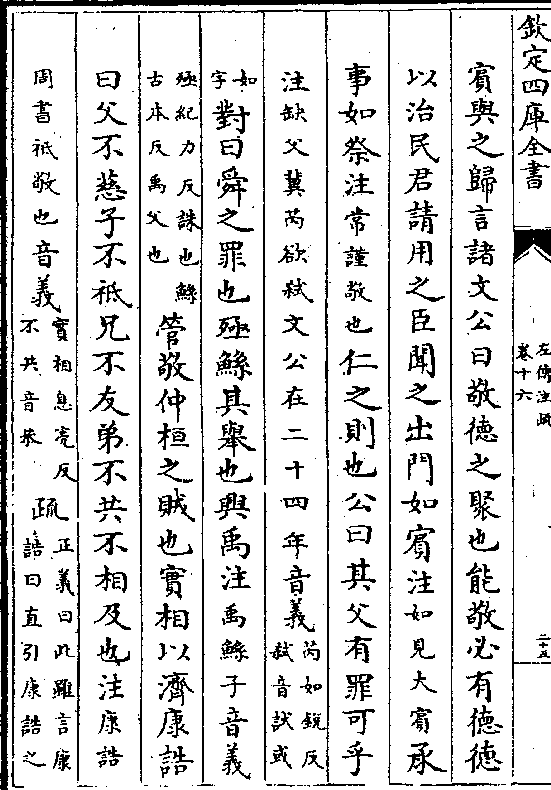 欽定四庫全書
左傳注疏
卷十六
二十五
賓與之歸言諸文公曰敬德之聚也能敬必有德德
以治民君請用之臣聞之出門如賓注如見大賓承
事如祭注常謹敬也仁之則也公曰其父有罪可乎
注缺父冀芮欲弑文公在二十四年音義芮如銳反
弑音試或
如
字對曰舜之罪也殛鯀其舉也興禹注禹鯀子音義
殛紀力反誅也鯀
古本反禹父也管敬仲桓之賊也實相以濟康誥
曰父不慈子不祗兄不友弟不共不相及也注康誥
周書祗敬也音義實相息亮反
不共音恭疏正義曰此雖言康
誥曰直引康誥之